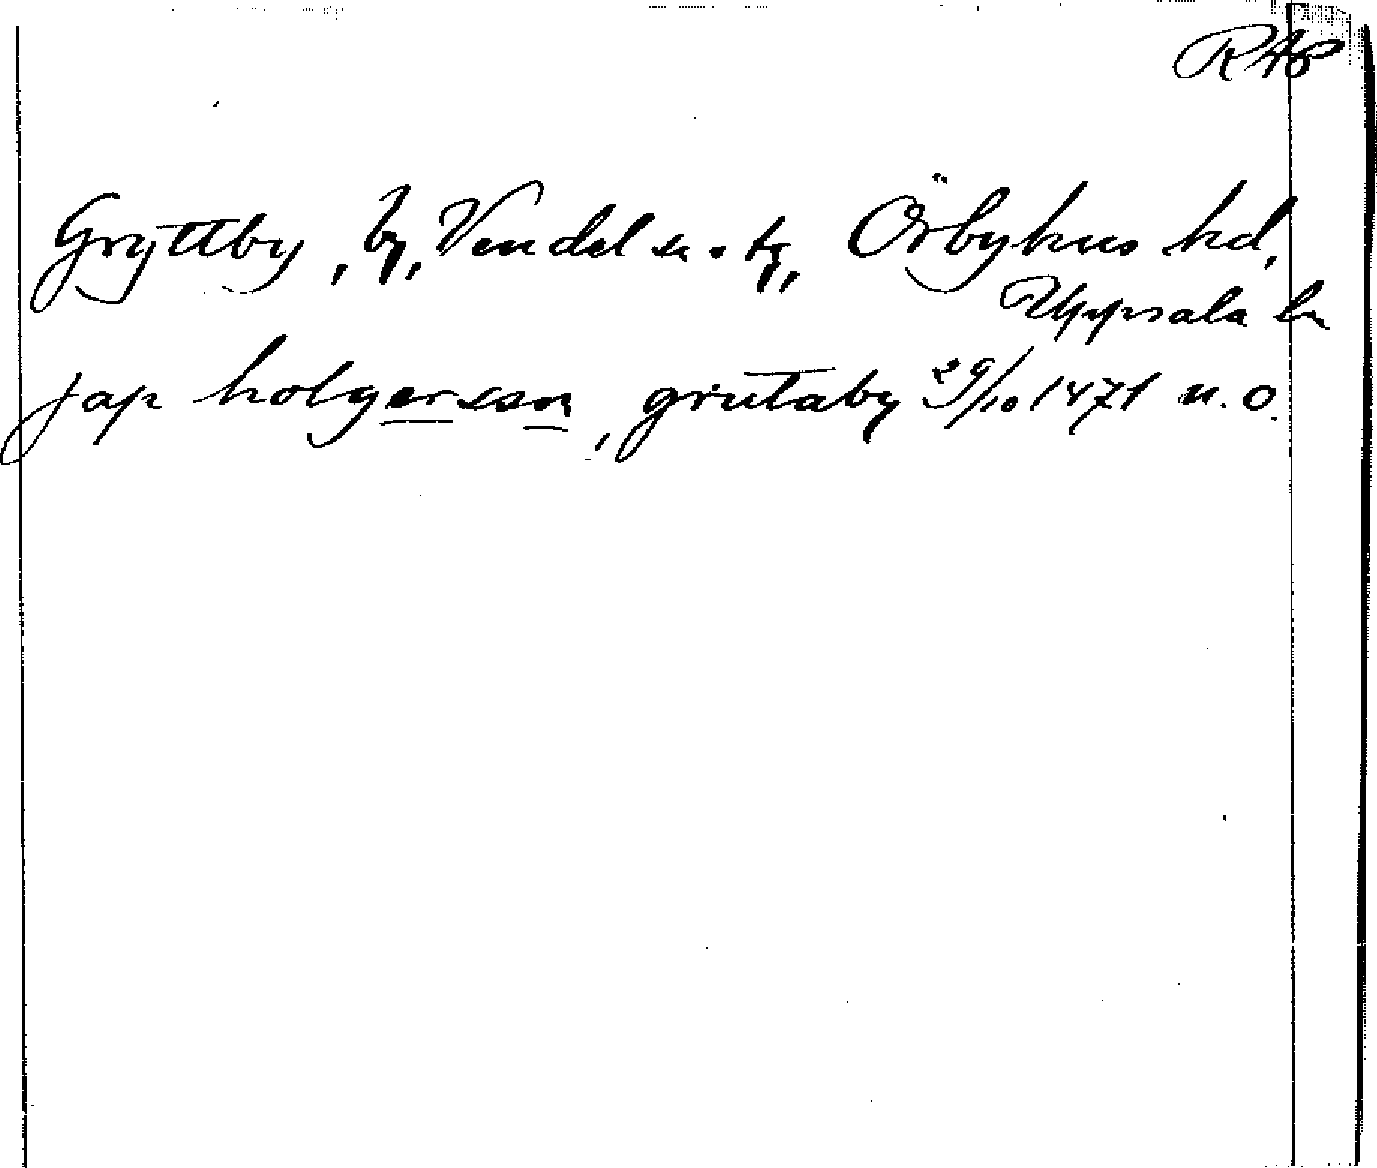 RAp
Gryttby, by, Vendel sn o. tg, Örbyhus hd,
Uppsala ln
jap holgersson, grutaby 29/10 1471 n. o.